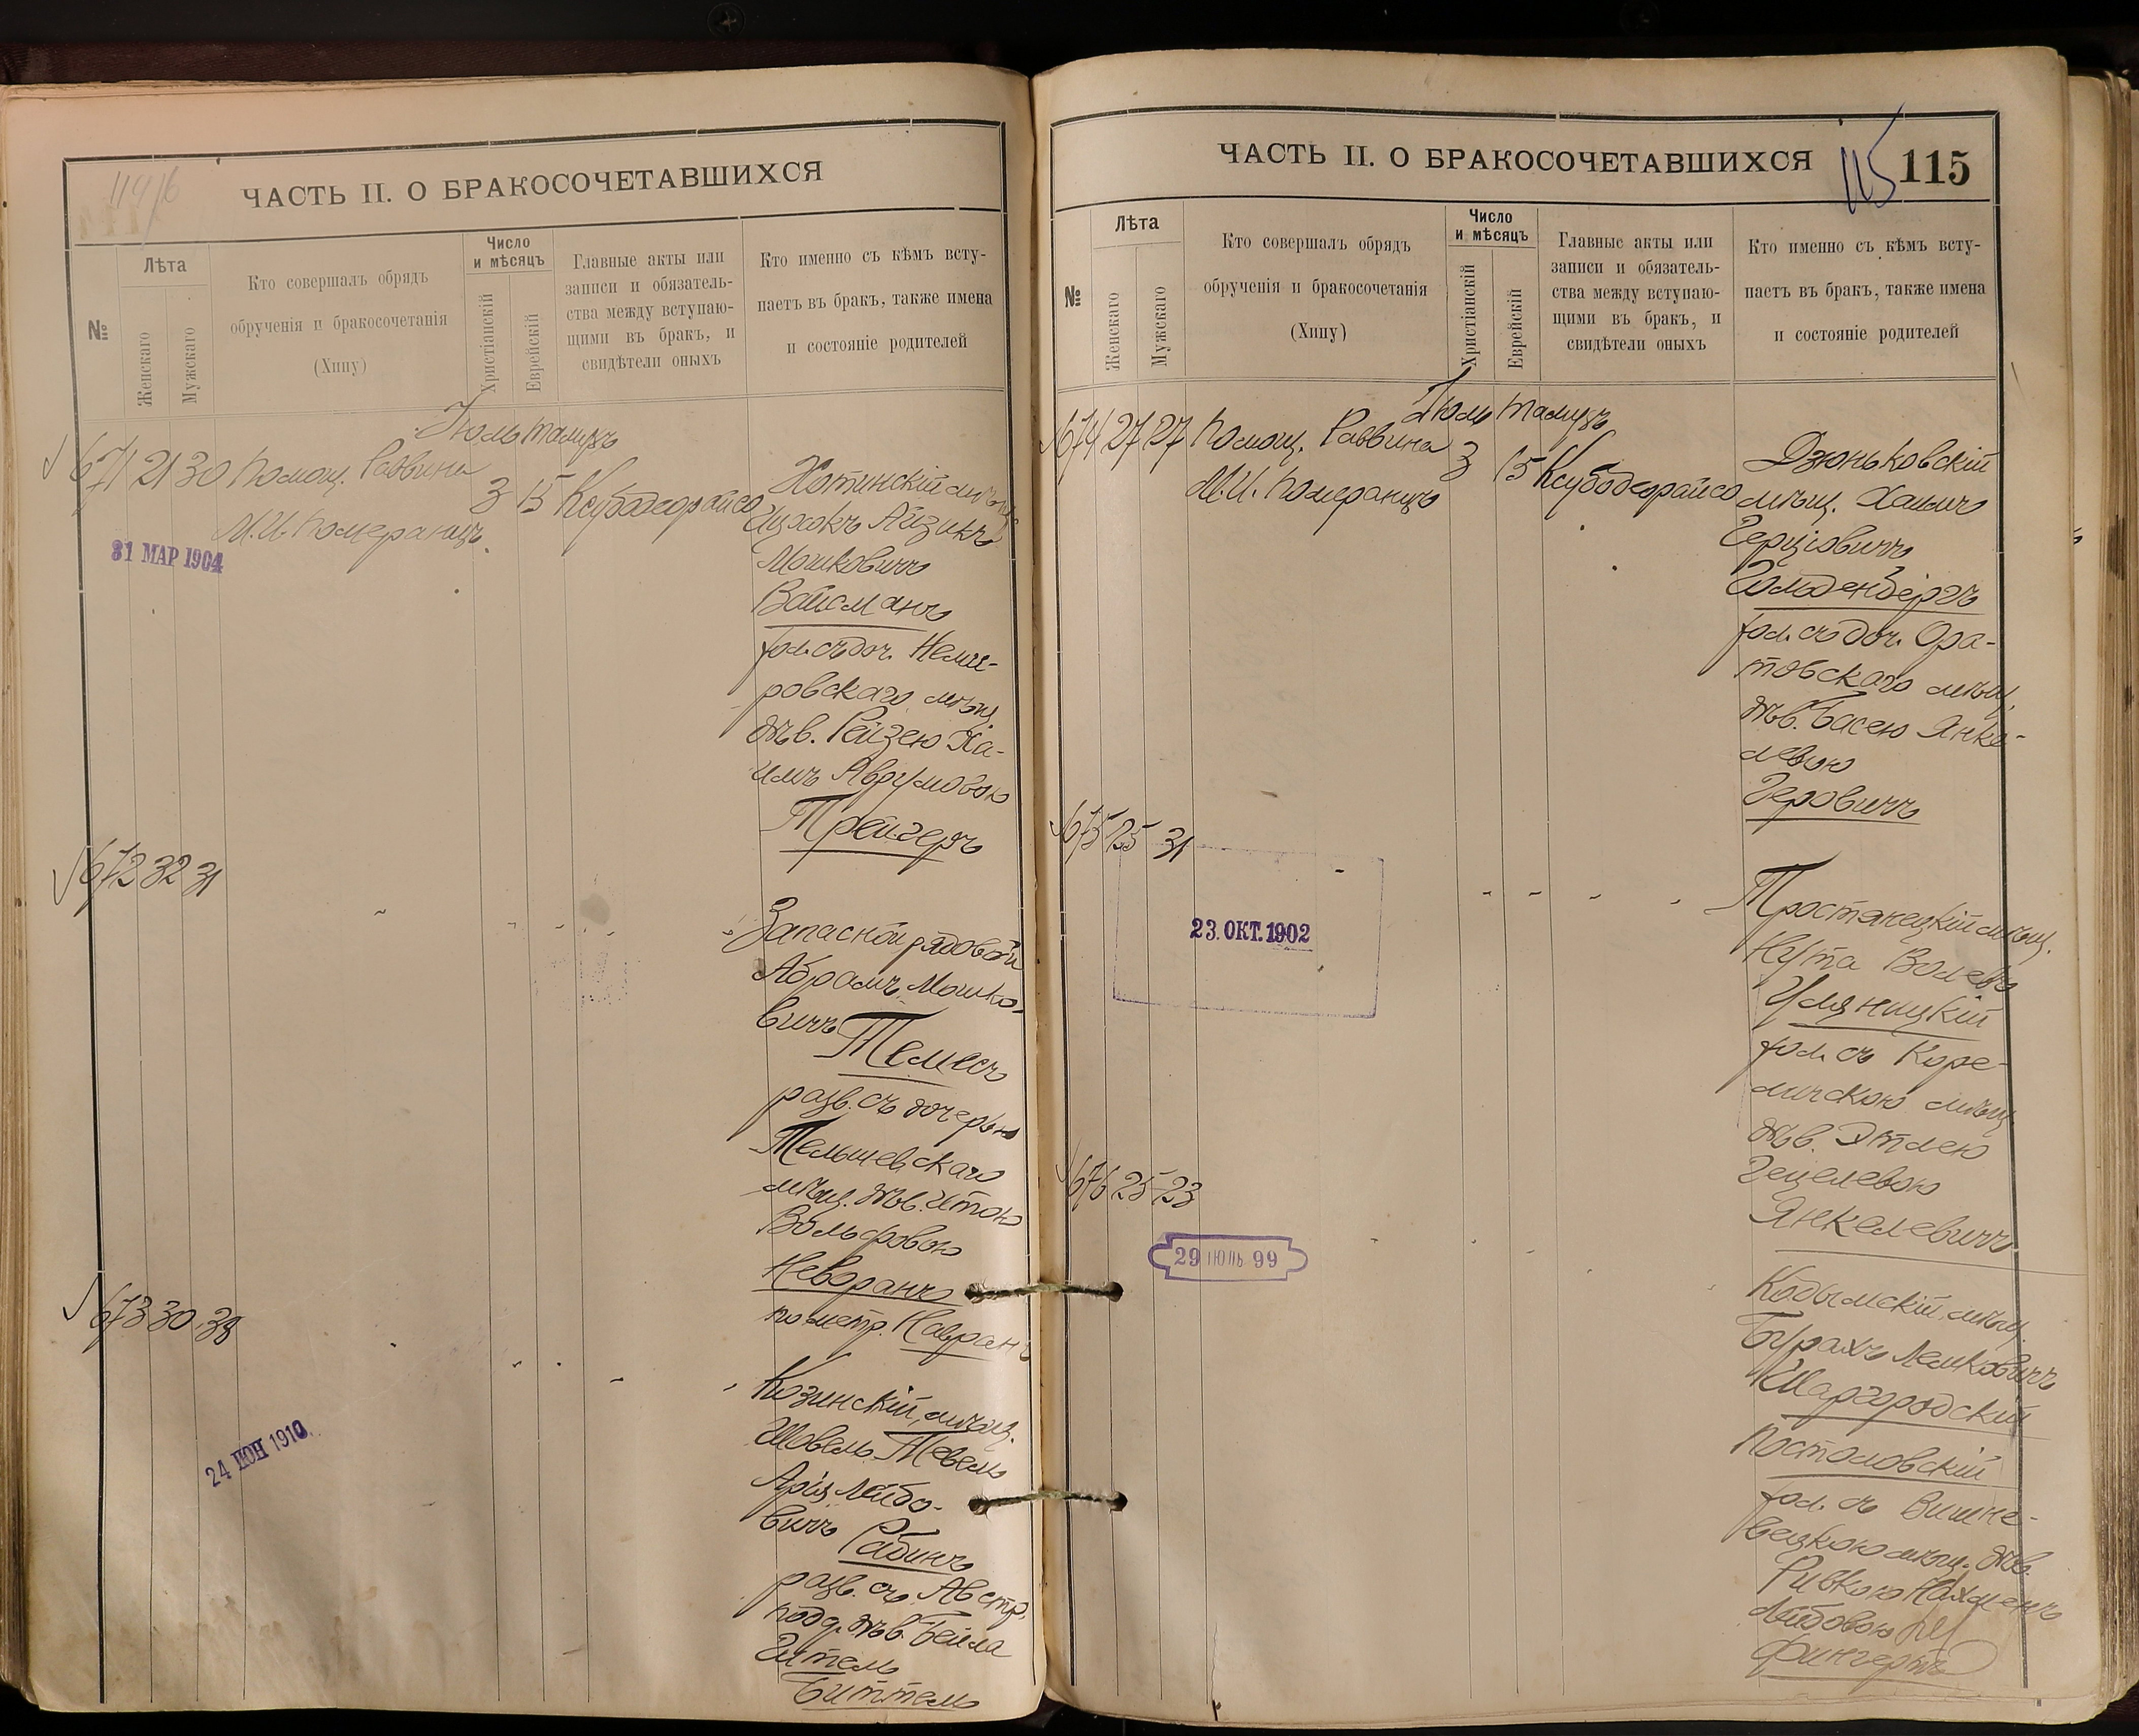 114/б
ЧАСТЬ II. О БРАКОСОЧЕТАВШИХСЯ
№
Лѣта
Женскаго
Мужскаго
Кто совершалъ обрядъ
обрученія и бракосочетанія
(Хипу)
Число
и мѣсяцъ
Христіанскій
Еврейскій
Главные акты или
записи и обязатель-
ства между вступаю-
щими въ бракъ, и
свидѣтели оныхъ
Кто именно съ кѣмъ всту-
паетъ въ бракъ, также имена
и состояніе родителей
Іюль Тамузъ
671 21 30 Помощ. Раввина 3 15 Ксубодеорайсо Хотинскій мѣщ.
М. И. Померанцъ
Ицхокъ Айзикъ
Мошковичъ
Вайсманъ
31 МАР 1904
хол. съ доч. Неми-
ровскаго мѣщ.
дѣв. Рейзею Ха-
имъ Аврумовою
Трейгеръ
672 32 31
Запасной рядовой
Абрамъ Мошко-
вичъ Телесъ
разв. съ дочерью
Тельшевскаго
мѣщ. дѣв. Итою
Вольфовою
Невранъ
по метр. Навранъ
673 30 38
Козинскій мѣщ.
Шовель Тевель
Арія Лейбо-
вичъ Рабинъ
разв. съ Австр.
подд. дѣв. Бейла
Гитель
Биттель
24 ИЮН 1910
ЧАСТЬ II. О БРАКОСОЧЕТАВШИХСЯ
115 115
№
Лѣта
Женскаго
Мужскаго
Кто совершалъ обрядъ
обрученія и бракосочетанія
(Хипу)
Число
и мѣсяцъ
Христіанскій
Еврейскій
Главные акты или
записи и обязатель-
ства между вступаю-
щими въ бракъ, и
свидѣтели оныхъ
Кто именно съ кѣмъ всту-
паетъ въ бракъ, также имена
и состояніе родителей
Іюль Тамузъ
674 27 27 Помощ. Раввина 3 15 Ксубодеорайсо Дзюньковскій
М. И. Померанцъ
мѣщ. Хаимъ
Герцовичъ
Гольденбергъ
хол. съ доч. Ора-
товскаго мѣщ.
дѣв. Басею Янке-
левою
Геровичъ
675 25 31
23. ОКТ. 1902
Тростянецкій мѣщ.
Нута Волевъ
Уляницкій
хол. съ Коре-
личскою мѣщ.
дѣв. Этлею
Гецелевою
Янкелевичъ
676 25 23
29 ІЮЛЬ 99
Кодымскій мѣщ.
Бурахъ Лейковичъ
Шаргородскій
Постоловскій
хол. съ Вишне-
вецкою мѣщ. дѣв.
Ривкою Нахманъ
Лейбовою
Фингертъ